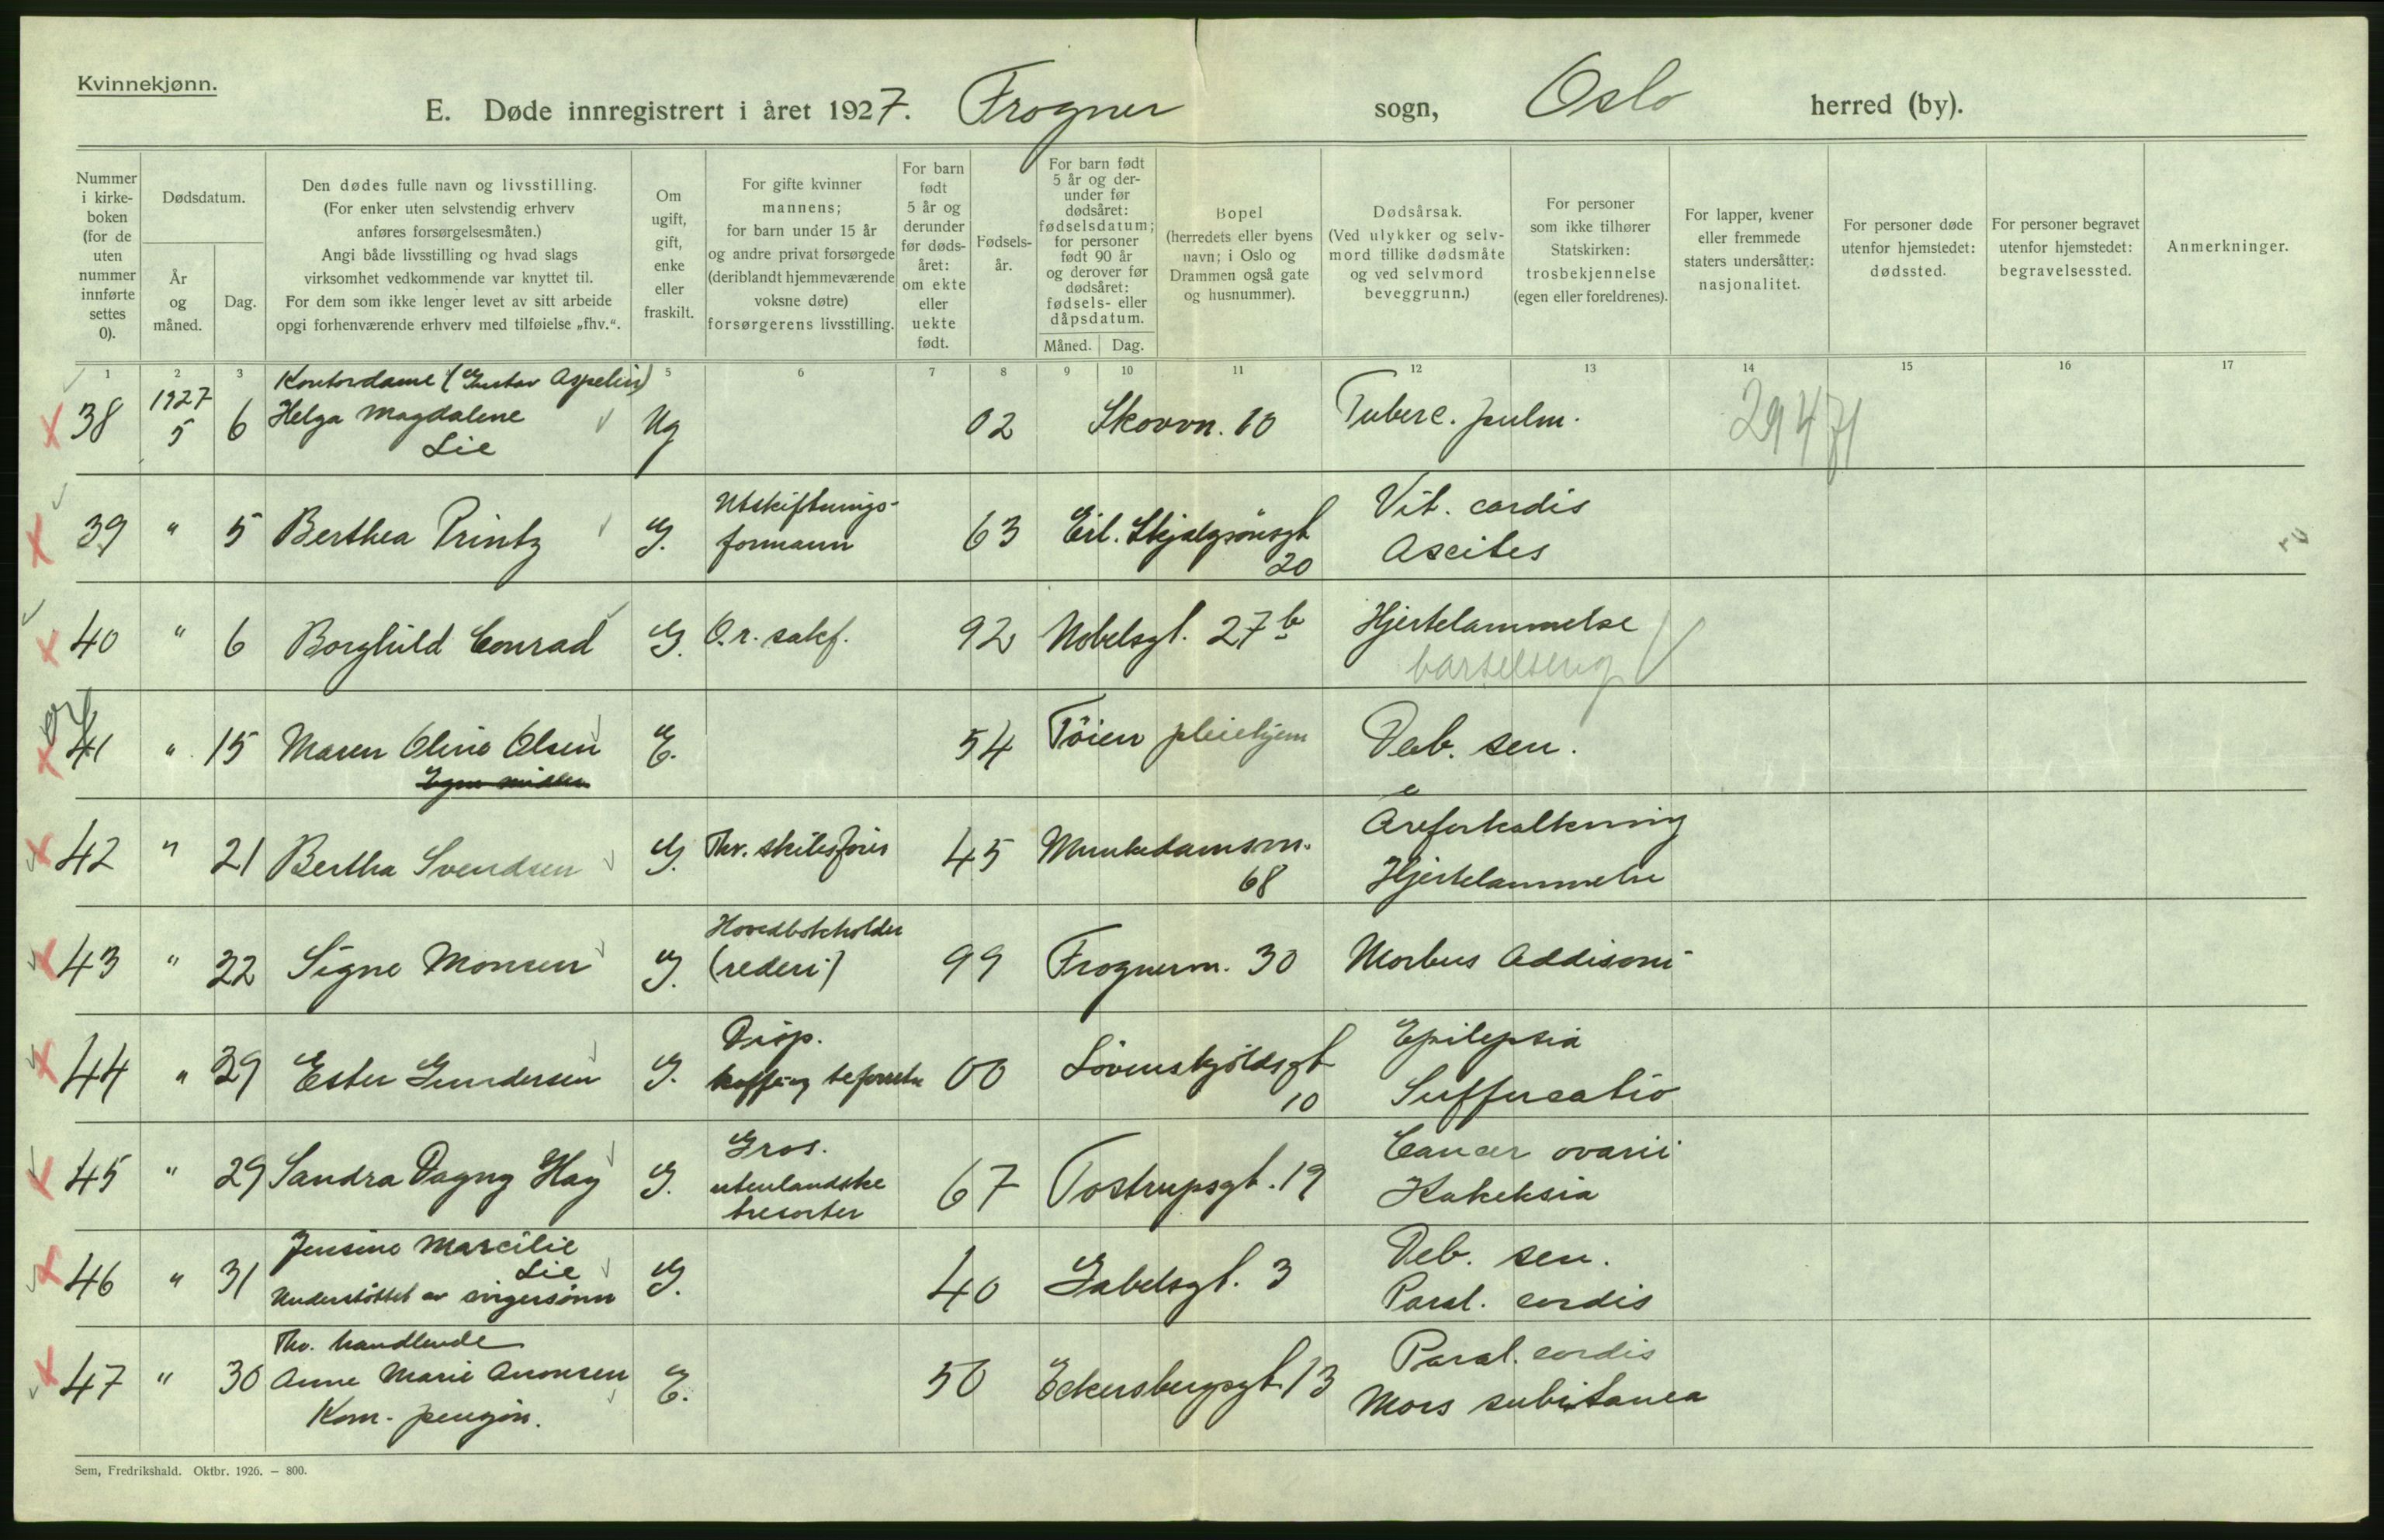 Kvinnekjønn.
E. Døde innregistrert i året 1927. Frogner sogn, Oslo herred (by).
Nummer i kirke-boken (for de uten nummer innførte settes 0).
Dødsdatum.
År og måned.
Dag.
Den dødes fulle navn og livsstilling.
(For enker uten selvstendig erhverv
anføres forsørgelsesmåten.)
Angi både livsstilling og hvad slags
virksomhet vedkommende var knyttet til.
For dem som ikke lenger levet av sitt arbeide
opgi forhenværende erhverv med tilføielse „fhv.“.
Om ugift, gift, enke eller fraskilt.
For gifte kvinner
mannens;
for barn under 15 år
og andre privat forsørgede
(deriblandt hjemmeværende
voksne døtre)
forsørgerens livsstilling.
For barn født 5 år og derunder før døds-året: om ekte eller uekte født.
Fødsels-år.
For barn født 5 år og der-under før dødsåret: fødselsdatum; for personer født 90 år og derover før dødsåret: fødsels- eller dåpsdatum.
Måned. Dag.
Bopel
(herredets eller byens
navn; i Oslo og
Drammen også gate
og husnummer).
Dødsårsak.
(Ved ulykker og selv-
mord tillike dødsmåte
og ved selvmord
beveggrunn.)
For personer
som ikke tilhører
Statskirken:
trosbekjennelse
(egen eller foreldrenes).
For lapper, kvener
eller fremmede
staters undersåtter:
nasjonalitet.
For personer døde
utenfor hjemstedet:
dødssted.
For personer begravet
utenfor hjemstedet:
begravelsessted.
Anmerkninger.
1 2 3 5 6 7 8 9 10 11 12 13 14 15 16 17
Kontordame (Gustav Aspelin)
38 1927 5 6 Helga Magdalene Lie Ug 02 Skovvn. 10 Tuberc. pulm. 29471
39 " 5 Berthea Printz G. Utskiftnings-formann 63 Erl. Skjalgsønsgt 20 Vit. cordis
Ascites
40 " 6 Borghild Conrad G. O.r. sakf. 92 Nobelsgt. 27 b Hjertelammelse
barselseng
41 " 15 Maren Oline Olsen E. 54 Töien pleiehjem Deb. sen.
Egne midler
42 " 21 Bertha Svendsen G. Fhv. skibsfører 45 Munkedamsvn. 68 Åreforkalkning
Hjertelammelse
43 " 22 Signe Monsen G. Hovedbokholder (rederi) 99 Frognervn. 30 Morbus Addisoni
44 " 29 Ester Gundersen G. Disp. kaffe og teforretn 00 Lövenskjöldsgt 10 Epilepsia
Suffucatio
45 " 29 Sandra Dagny Hay G. Gros. utenlandske tresorter 67 Tostrupsgt. 19 Cancer ovarii
Kakeksia
46 " 31 Jensine Marcilie Lie G. 40 Gabelsgt. 3 Deb. sen.
Understöttet av svigersönn Paral. cordis
Fhv. handlende
47 " 30 Anne Marie Aronsen E. 50 Eckersbergsgt. 13 Paral. cordis
Kom. pengion. Mors subitanea
Sem, Fredrikshald. Oktbr. 1926. — 800.